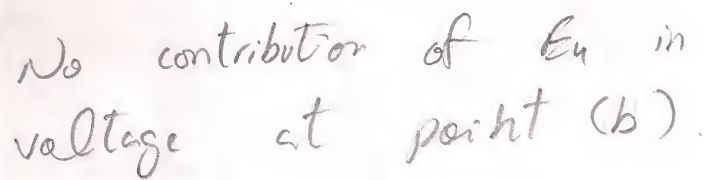 No contribution of E4 in
voltage at point (b).